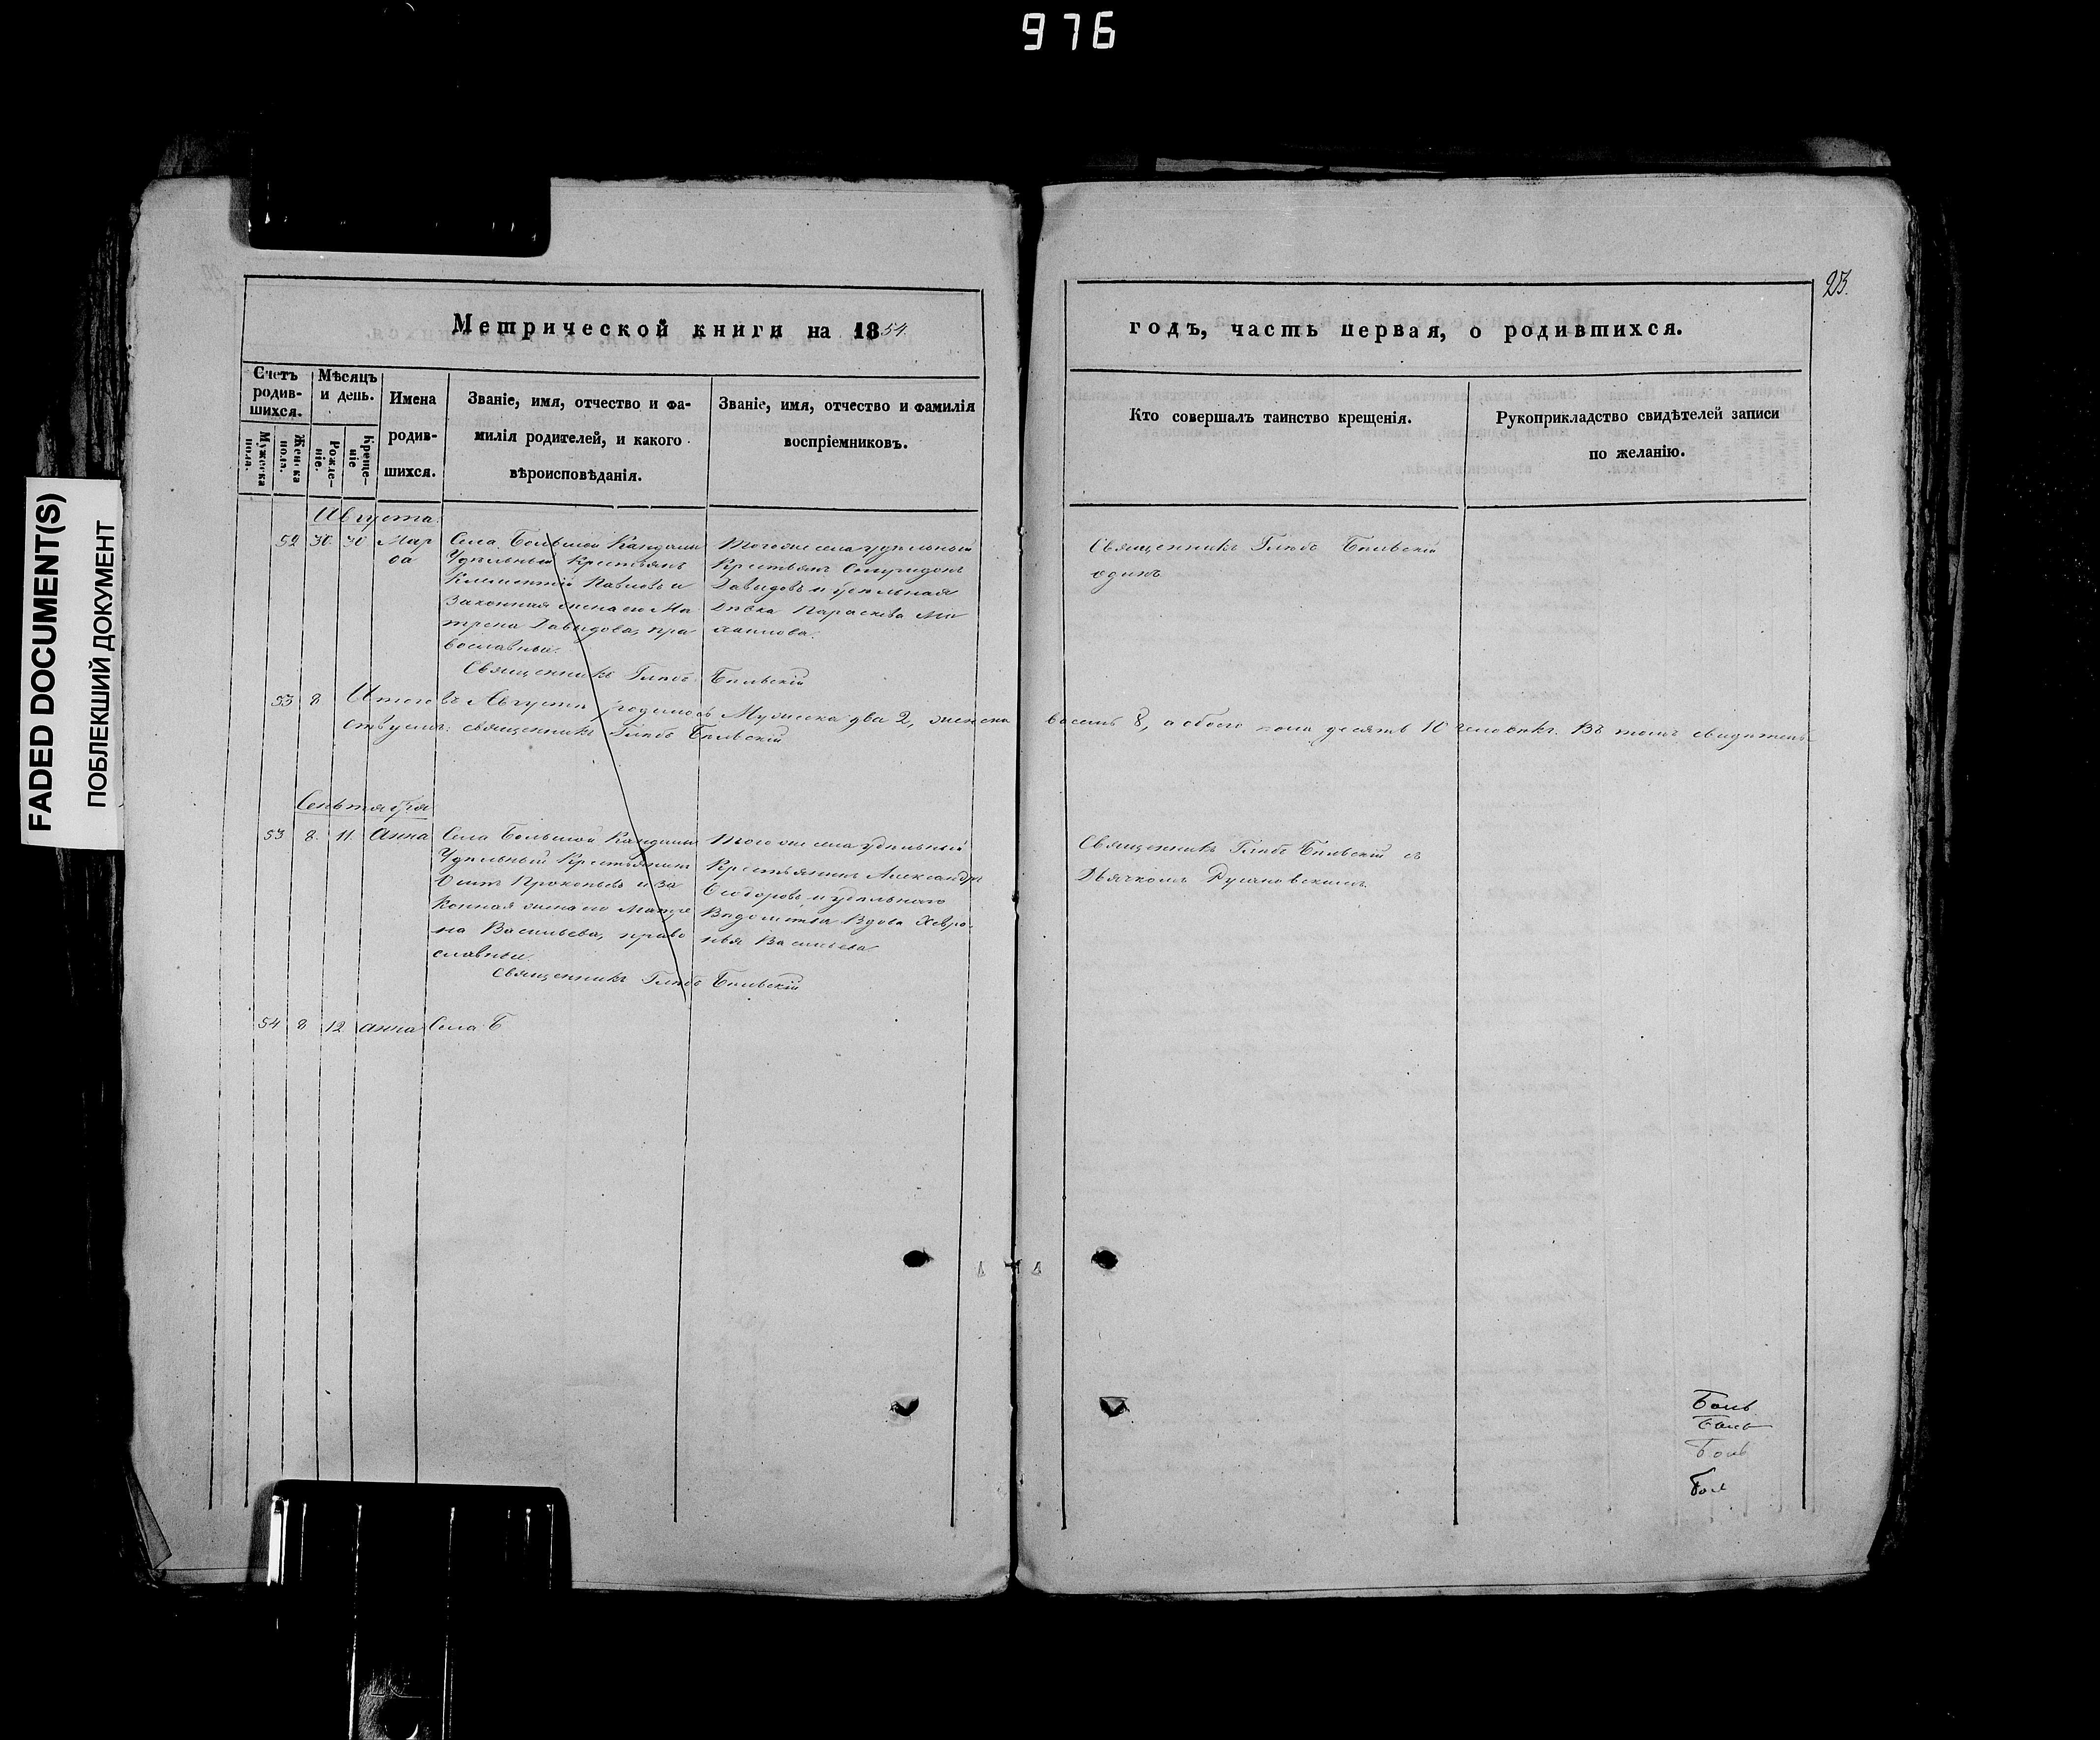 976
FADED DOCUMENT(S)
ПОБЛЕКШИЙ ДОКУМЕНТ
23.
Метрической книги на 1854.
годъ, часть первая, о родившихся.
Счетъ родив-шихся.
Мужеска пола.
Женска пола.
Мѣсяцъ и день.
Рожде-ніе.
Креще-ніе
Имена
родив-
шихся.
Званіе, имя, отчество и фа-
милія родителей, и какого
вѣроисповѣданія.
Званіе, имя, отчество и фамилія
воспріемниковъ.
Кто совершалъ таинство крещенія.
Рукоприкладство свидѣтелей записи
по желанію.
Августа
52 30 30 Мар
ѳа
Села Большой Кандалы
Удѣльный Крестьянъ
Климентій Павловъ и
Законная жена его Ма
трена Давыдова, пра
вославные.
Тогоже села удѣльный
Крестьянъ Спиридонъ
Давыдовъ и удѣльная
Дѣвка Параскева Ми
хаилова.
Священникъ Глѣбъ Бѣльскій
одинъ
Священникъ Глѣбъ Бѣльскій
53 8 Итого въ Августѣ родилось Мужеска два 2, женска восемь 8, а обоего пола десять 10 человѣкъ. Въ томъ свидѣтель
ствуемъ: священникъ Глѣбъ Бѣльскій
Сентября
53 8. 11. Анна
Села Большой Кандалы
Удѣльный Крестьянинъ
Прокопьевъ и за
конная жена его Матре
на Васильева, право
славные.
Тогоже села удѣльный
Крестьянинъ Александръ
Ѳеодоровъ и удѣльнаго
Вѣдомства Вдова Хевро
нья Васильева
Священникъ Глѣбъ Бѣльскій съ
Дьячкомъ
Священникъ Глѣбъ Бѣльскій
54 8 12 Анна Села Б
Боль
Боль
Боль
Бол